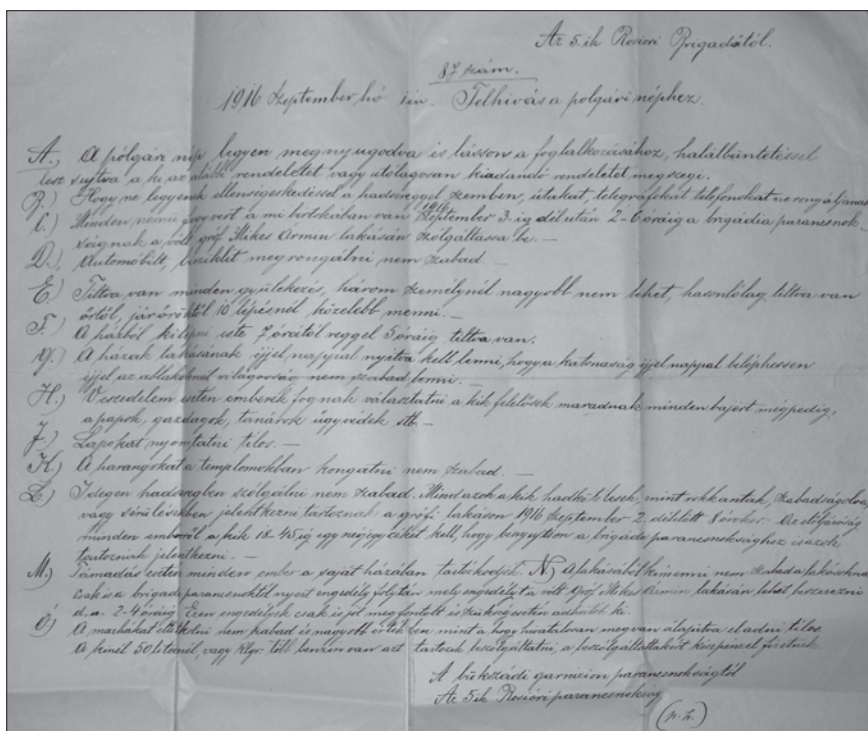 Az 5.ik Rosiori Brigadától.
87 szám.
1916 Szeptember hó 1én. Felhivás a polgári néphez.
A.) A pólgári nép legyen megnyugodva és lásson a foglalkozásához, halálbüntetéssel
lesz sujtva a ki az alábbi rendeletet vagy utólagosan kiadandó rendeletet megszegi.
B.) Hogy ne legyenek ellenségeskedéssel a hadsereggel szemben, útakat, telegráfokat telefonokat ne rongáljanak
C.) Minden nemű fegyvert a mi birtokában van 1916 Szeptember 3.ig délután 2-6 óráig a brigádia parancsnok-
ságnak a vólt gróf Mikes Ármin lakásán szólgáltassa be. —
D.) Automobilt, biciklit megrongálni nem szabad. —
E.) Tiltva van minden gyülekezés, három személynél nagyobb nem lehet, hasonlólag tiltva van
őrtől, járőröktől 10 lépésnél közelebb menni. —
F.) A házból kilépni este 7 órától reggel 5 óráig tiltva van.
G.) A házak lakásának éjjel nappal nyitva kell lenni, hogy a katonaság éjjel nappal beléphessen
éjjel az ablakoknál világosság nem szabad lenni. —
H.) Veszedelem esetén emberek fognak választatni a kik felelősek maradnak minden bajért mégpedig,
a papok, gazdagok, tanárok ügyvédek stb —
J.) Lapokat nyomtatni tilos. —
K.) A harangokat a templomokban kongatni nem szabad. —
L.) Idegen hadseregben szólgálni nem szabad. Mind azok a kik hadkötelesek, mint rokkantak, szabadságolva,
vagy sérülésben jelentkezni tartoznak a grófi lakáson 1916 Szeptember 2. délelőtt 8 órakor. Az elöljáróság
minden emberől a kik 18-45 ig egy névjegyzéket kell, hogy benyujtson a brigáda parancsnoksághoz is azok
tartoznak jelentkezni. —
M.) Támadás esetén minden ember a saját házában tartózkodjék. N.) A lakásából kimenni nem szabad a lakósoknak
csakis a brigáda parancsnoktól nyert engedély folytán mely engedélyt a vólt Gróf Mikes Ármin lakásán lehet beszerezni
d.u. 2-4 óráig. Ezen engedélyek csakis jól megfontolt és szükség esetén adhatók ki.
O.) A marhákat eltitkolni nem szabad és nagyobb értékben mint a hogy hivatalosan meg van álapitva el adni tilos.
A kinél 50 liternél, vagy klgr. több benzin van azt tartozik beszólgáltatni, a beszólgáltatakért készpénzel fizetünk.
A bükszádi garnizion parancsnokságtól
Az 5.ik Rosióri parancsnokság
(p.h.)